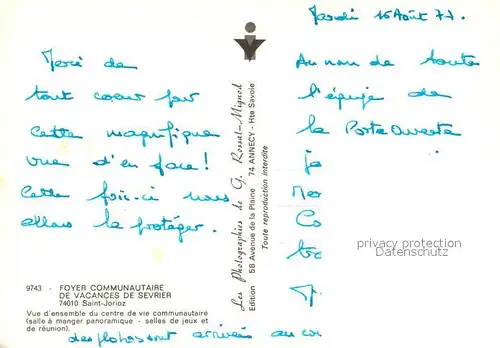 Mardi 16 Août 77.
Merci de
tout coeur pour
cette magnifique
vue d'en face!
Cette fois-ci nous
allons la protéger.
Au nom de toute
l'équipe de
la Porte Ouverte
je
Mer
Co
P.
privacy protection
Datenschutz
Les Photographies de G. Rossat-Mignod
Edition 58 Avenue de la Plaine 74 ANNECY - Hte Savoie
Toute reproduction interdite
9743 - FOYER COMMUNAUTAIRE
DE VACANCES DE SEVRIER
74010 Saint-Jorioz
Vue d'ensemble du centre de vie communautaire
(salle à manger panoramique - salles de jeux et
de réunion).
des photos sont arrivées au cou